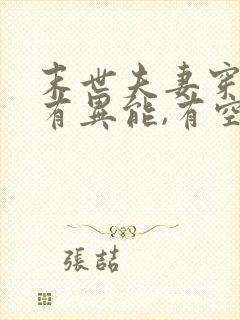 末世夫妻穿
有異能,有空
張喆